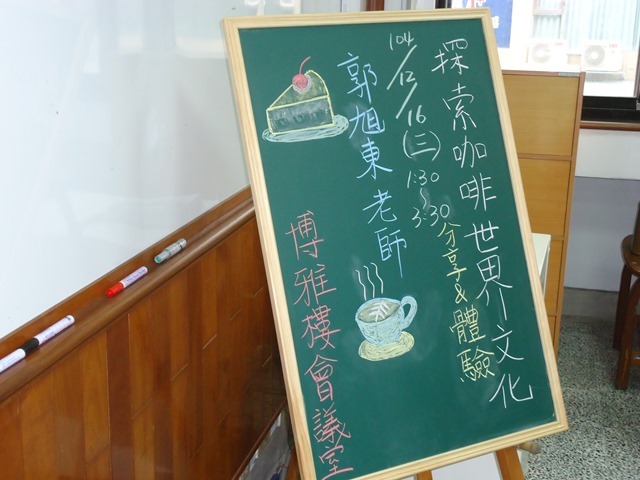 探索咖啡世界文化
分享&體驗
104/12/16(三)1:30~3:30
郭旭東老師
博雅樓會議室